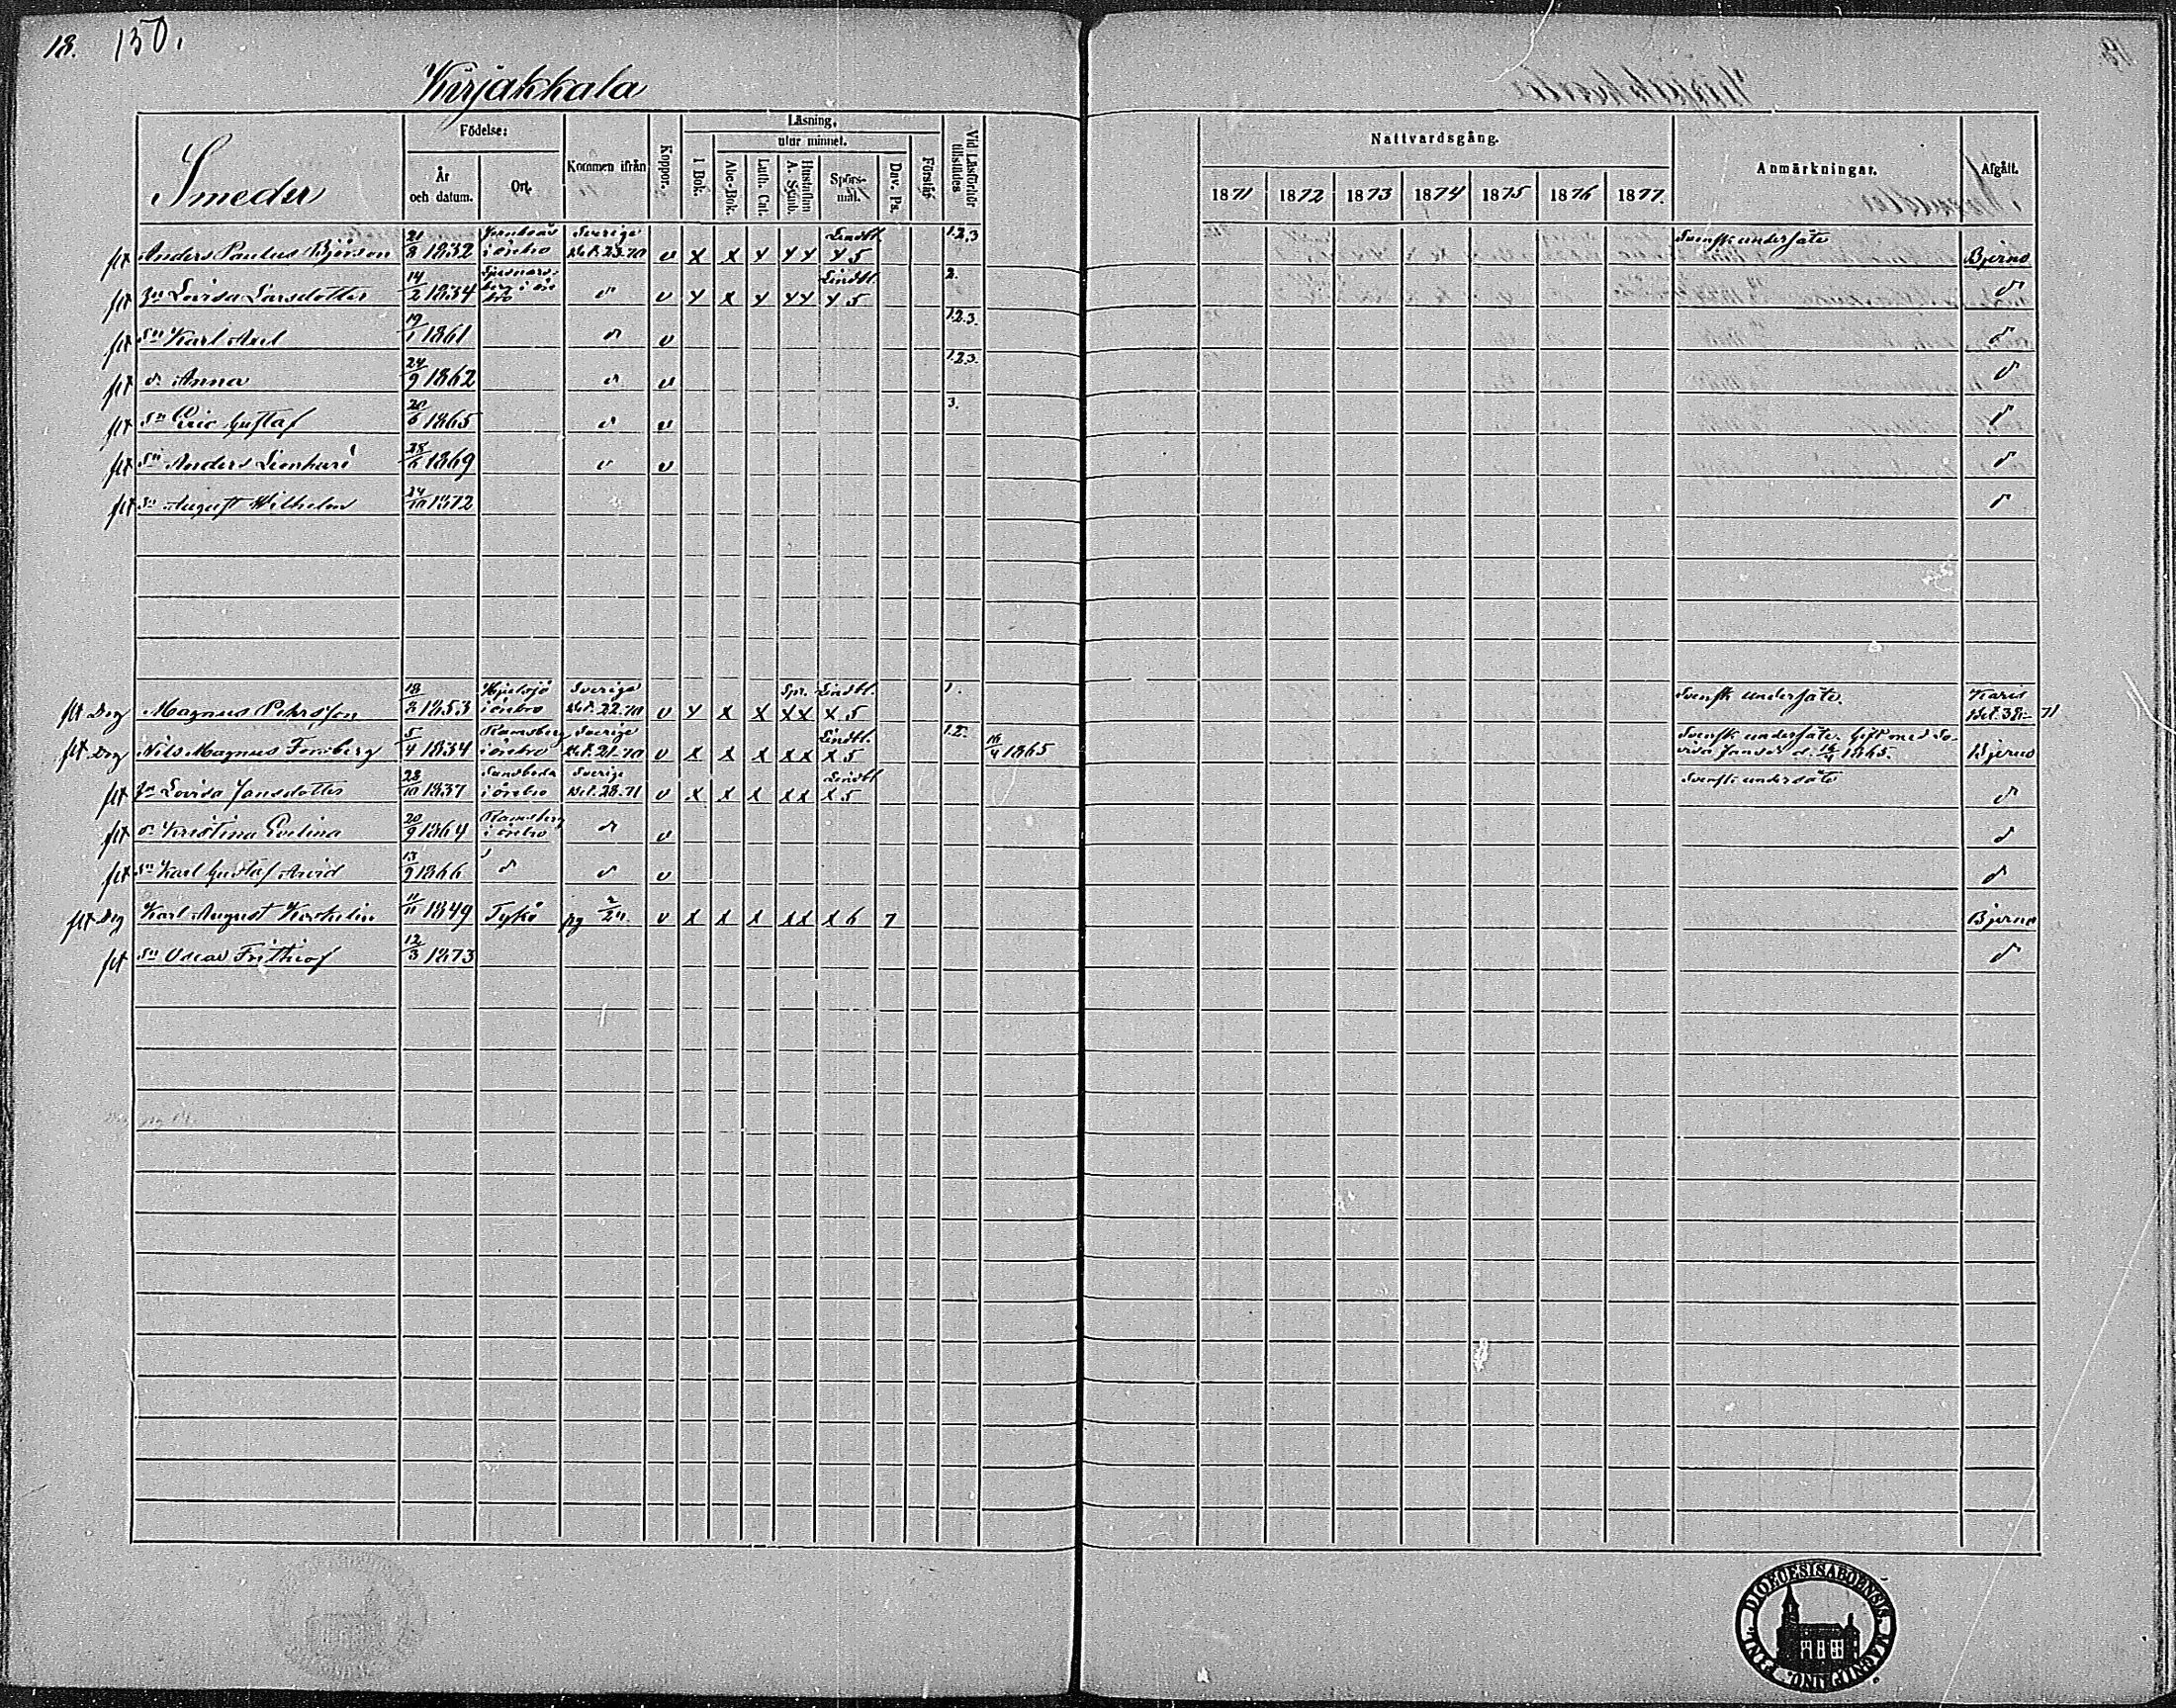 18. 150.
Kirjakkala
Smeder
Födelse:
År och datum.
Ort.
Kommen ifrån
Koppor.
Läsning,
utur minnet.
I Bok.
Abc-Bok.
Luth. Cat.
Hustaflan A. Symb.
Spörsmål.
Dav. Ps.
Förstånd
Vid Läsförhör tillstädes
Nattvardsgång.
1871 1872 1873 1874 1875 1876 1877.
Anmärkningar.
Afgått.
flt Anders Paulus Björson 21/8 1832 i örebro Sverige Bet. 23.70 v x x x xx x 5 Lindbl. 1.2.3 Svensk undersåte Bjerno
flt Lovisa Larsdotter 14/2 1834 d:o v x x x xx x 5 Lindbl. 2. d:o
flt Sn Karl Axel 19/1 1861 d:o v 1.2.3. d:o
flt d. Anna 24/9 1862 d:o v 1.2.3. d:o
flt Sn Eric Gustaf 20/6 1865 d:o v 3. d:o
flt Sn Anders Leonhard 28/6 1869 v d:o
flt Sn August Wilhelm 24/10 1872 d:o
flt Drg Magnus Pehrsson 18/2 1853 Hjulsjö i örebro Sverige Bet. 22.70 v x x x xx x 5 Spr. Lindbl. 1. Svensk undersåte. Karis Bet. 38 71
flt Drg Nils Magnus Forsberg 5/4 1834 Ramsberg i örebro Sverige Bet. 21.70 v x x x xx x 5 Lindbl. 1.2. 16/4 1865 Svensk undersåte. Gift med Lovisa Jansd. d. 16/4 1865. Bjerno
flt Lovisa Jansdotter 28/10 1837 i örebro Sverige Bet. 28.71 v x x x xx x 5 Lindbl. Svensk undersåte d:o
flt d. Kristina Evelina 20/9 1864 Ramsberg i örebro d:o v d:o
flt Sn Karl Gustaf Arvid 13/9 1866 d:o d:o v d:o
flt Drg Karl August 11/11 1849 Tykö pg 2/24. v x x x xx x 6 7 Bjerno
flt Sn Oscar Frithiof 12/3 1873 d:o
DIOECESIS ABOENSIS MAGNI DUC. FINL.